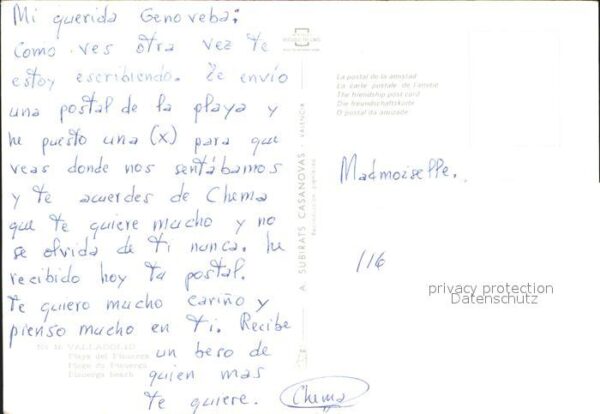 Mi querida Genoveba:
Como ves otra vez te
estoy escribiendo. Te envío
una postal de la playa y
he puesto una (x) para que
veas donde nos sentábamos
y te acuerdes de Chema
que te quiere mucho y no
se olvida de ti nunca. he
recibido hoy tu postal.
te quiero mucho cariño y
pienso mucho en ti. Recibe
un beso de
quien mas
te quiere. Chema
VALLADOLID
Playa del Pisuerga
Plage du Pisuerga
Pisuerga beach
A. SUBIRATS CASANOVAS - VALENCIA
La postal de la amistad
La carte postale de l'amitié
The friendship post card
Die freundschaftskarte
O postal da amizade
Madmoiselle.
116
privacy protection
Datenschutz